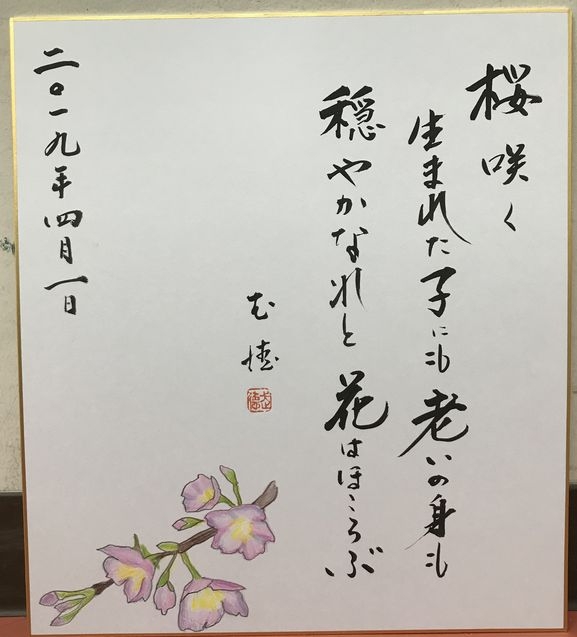 桜咲く
生まれた子にも老いの身も
穏やかなれと花はほころぶ
二〇一九年四月一日